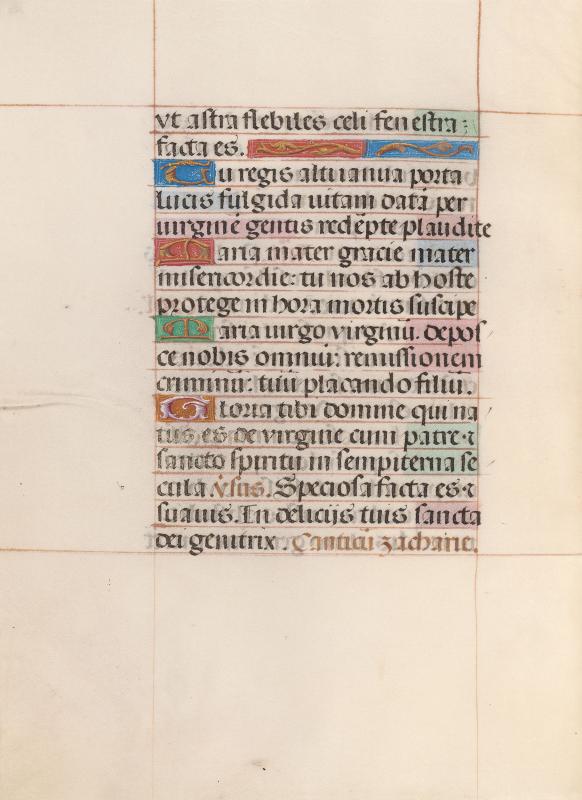 vt astra flebiles celi fenestra:
facta es.
Tu regis alti ianua porta
lucis fulgida uitam datā per
uirginē gentis redēpte plaudite
Maria mater gracie mater
misericordie: tu nos ab hoste
protege in hora mortis suscipe
Maria uirgo virginū. depos
ce nobis omniū: remissionem
criminū: tuū placando filiū.
Gloria tibi domine qui na
tus es de virgine cum patre ⁊
sancto spiritu in sempiterna se
cula. v̄sus. Speciosa facta es ⁊
suauis. In delicijs tuis sancta
dei genitrix. Canticū zacharie.